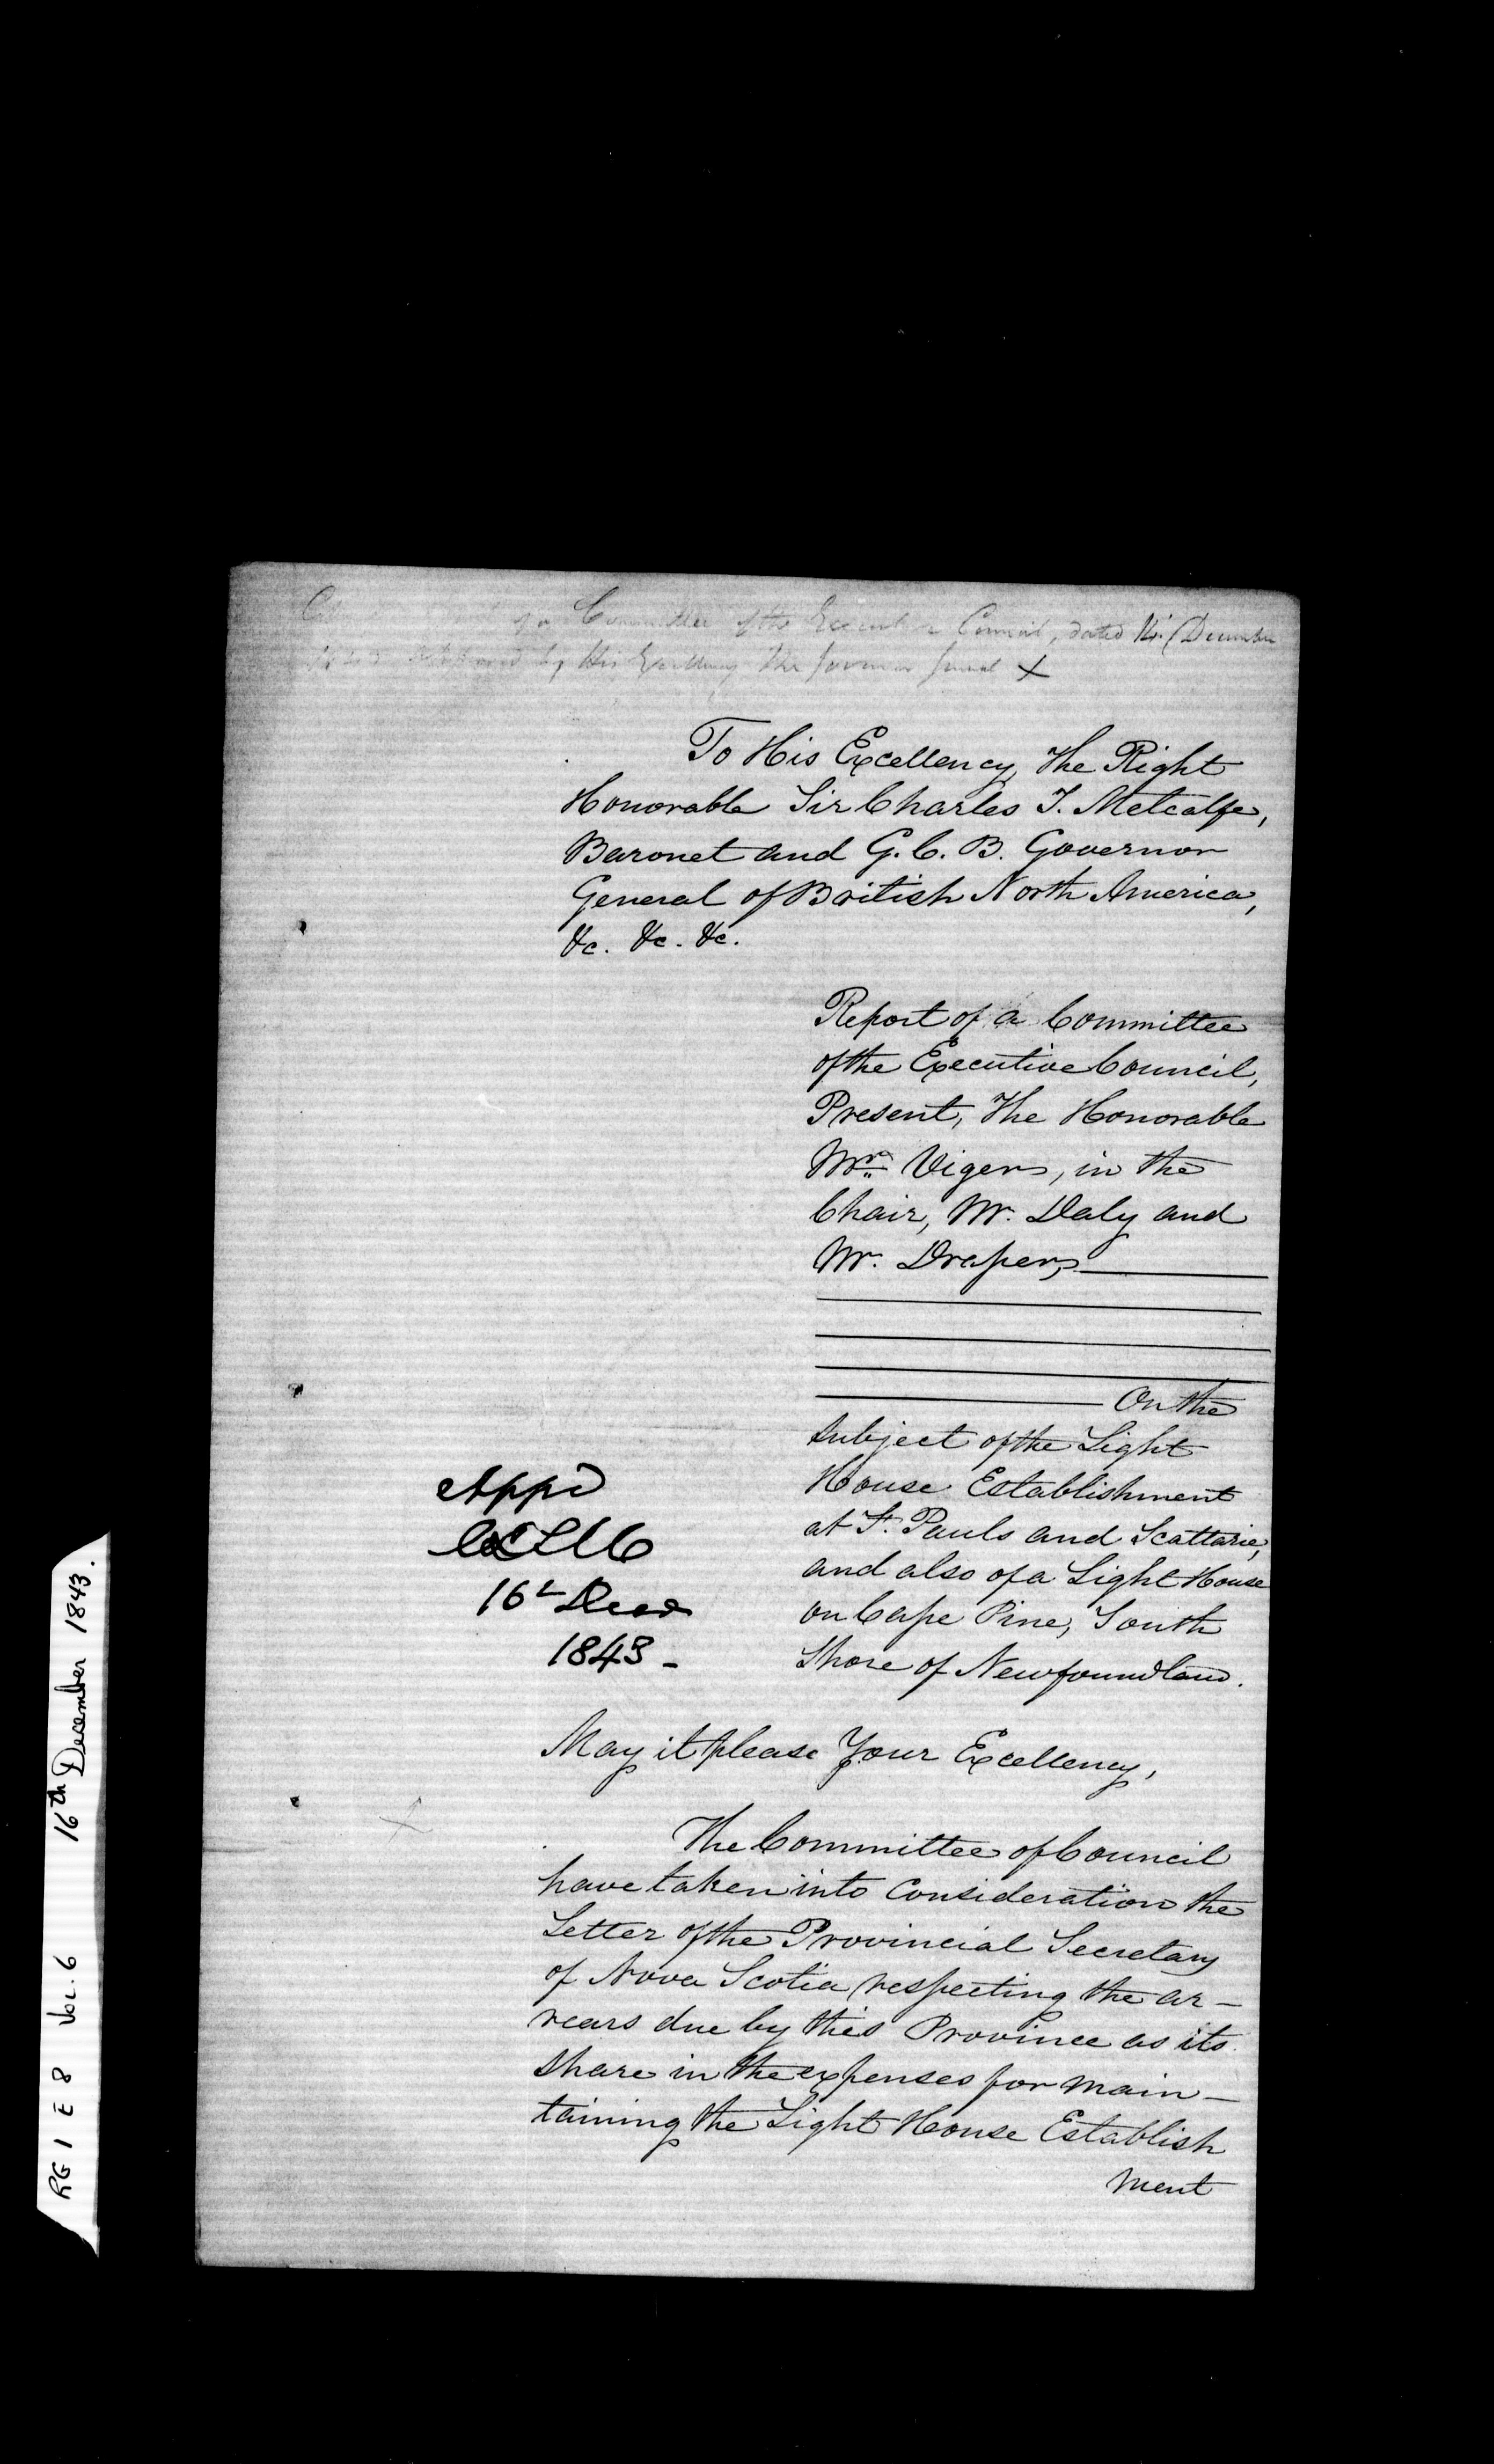 of a Committee of the Executive Council, dated 14. December
by His Excellency The Governor General X
To His Excellency, The Right
Honorable Sir Charles T. Metcalfe,
Baronet and G. C. B. Governor
General of British North America,
&c. &c. &c.
Report of a Committee
of the Executive Council,
Present, The Honorable
Mr. Viger, in the
Chair, Mr. Daly and
Mr. Draper,
On the
subject of the Light
House Establishment
at St. Pauls and Scattarie,
and also of a Light House
on Cape Pine, South
Shore of Newfoundland.
Appd
16
1843 -
May it please Your Excellency,
The Committee of Council
have taken into Consideration the
Letter of the Provincial Secretary
of Nova Scotia respecting the ar-
rears due by this Province as its
share in the expenses for main-
taining the Light House Establish
ment
RG 1 E 8 Vol. 6 16th December 1843.